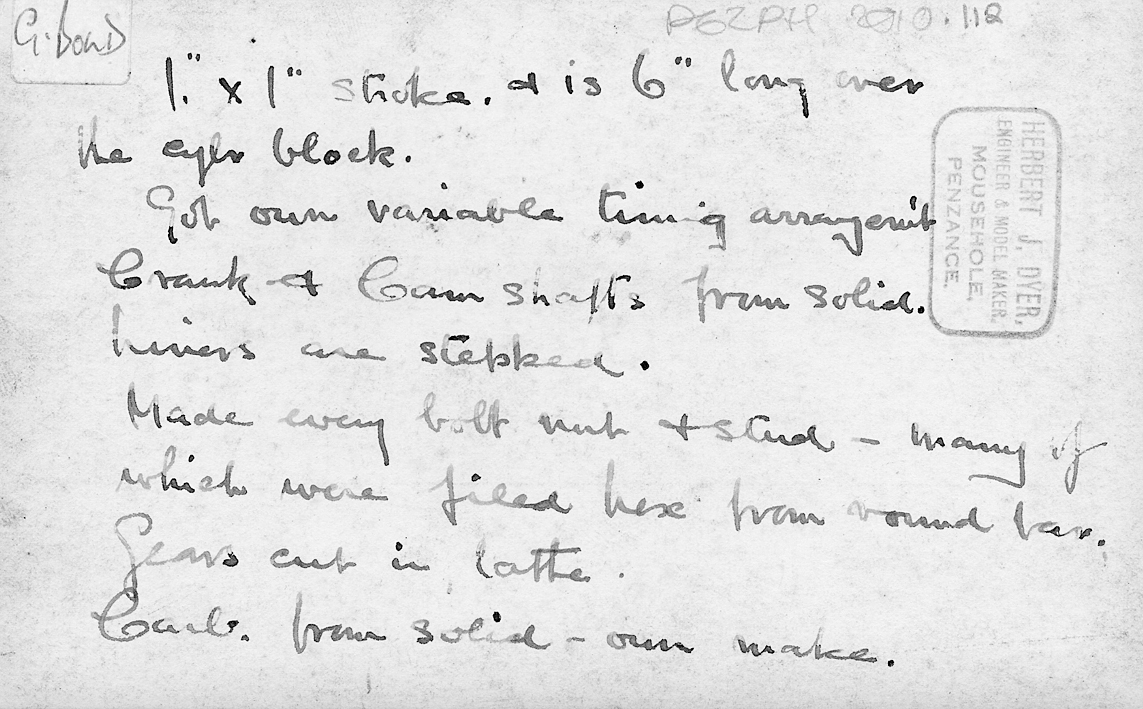 G. Bond
PEZPH 2010.112
1" x 1" stroke. & is 6" long over
the cylr block.
Got own variable timing arrangem't
Crank & Cam shafts from solid.
Liners are stepped.
Made every bolt nut & stud – many of
which were filed hex from round bar.
Gears cut in lathe.
Carb. from solid – own make.
HERBERT J. DYER,
ENGINEER & MODEL MAKER,
MOUSEHOLE,
PENZANCE.